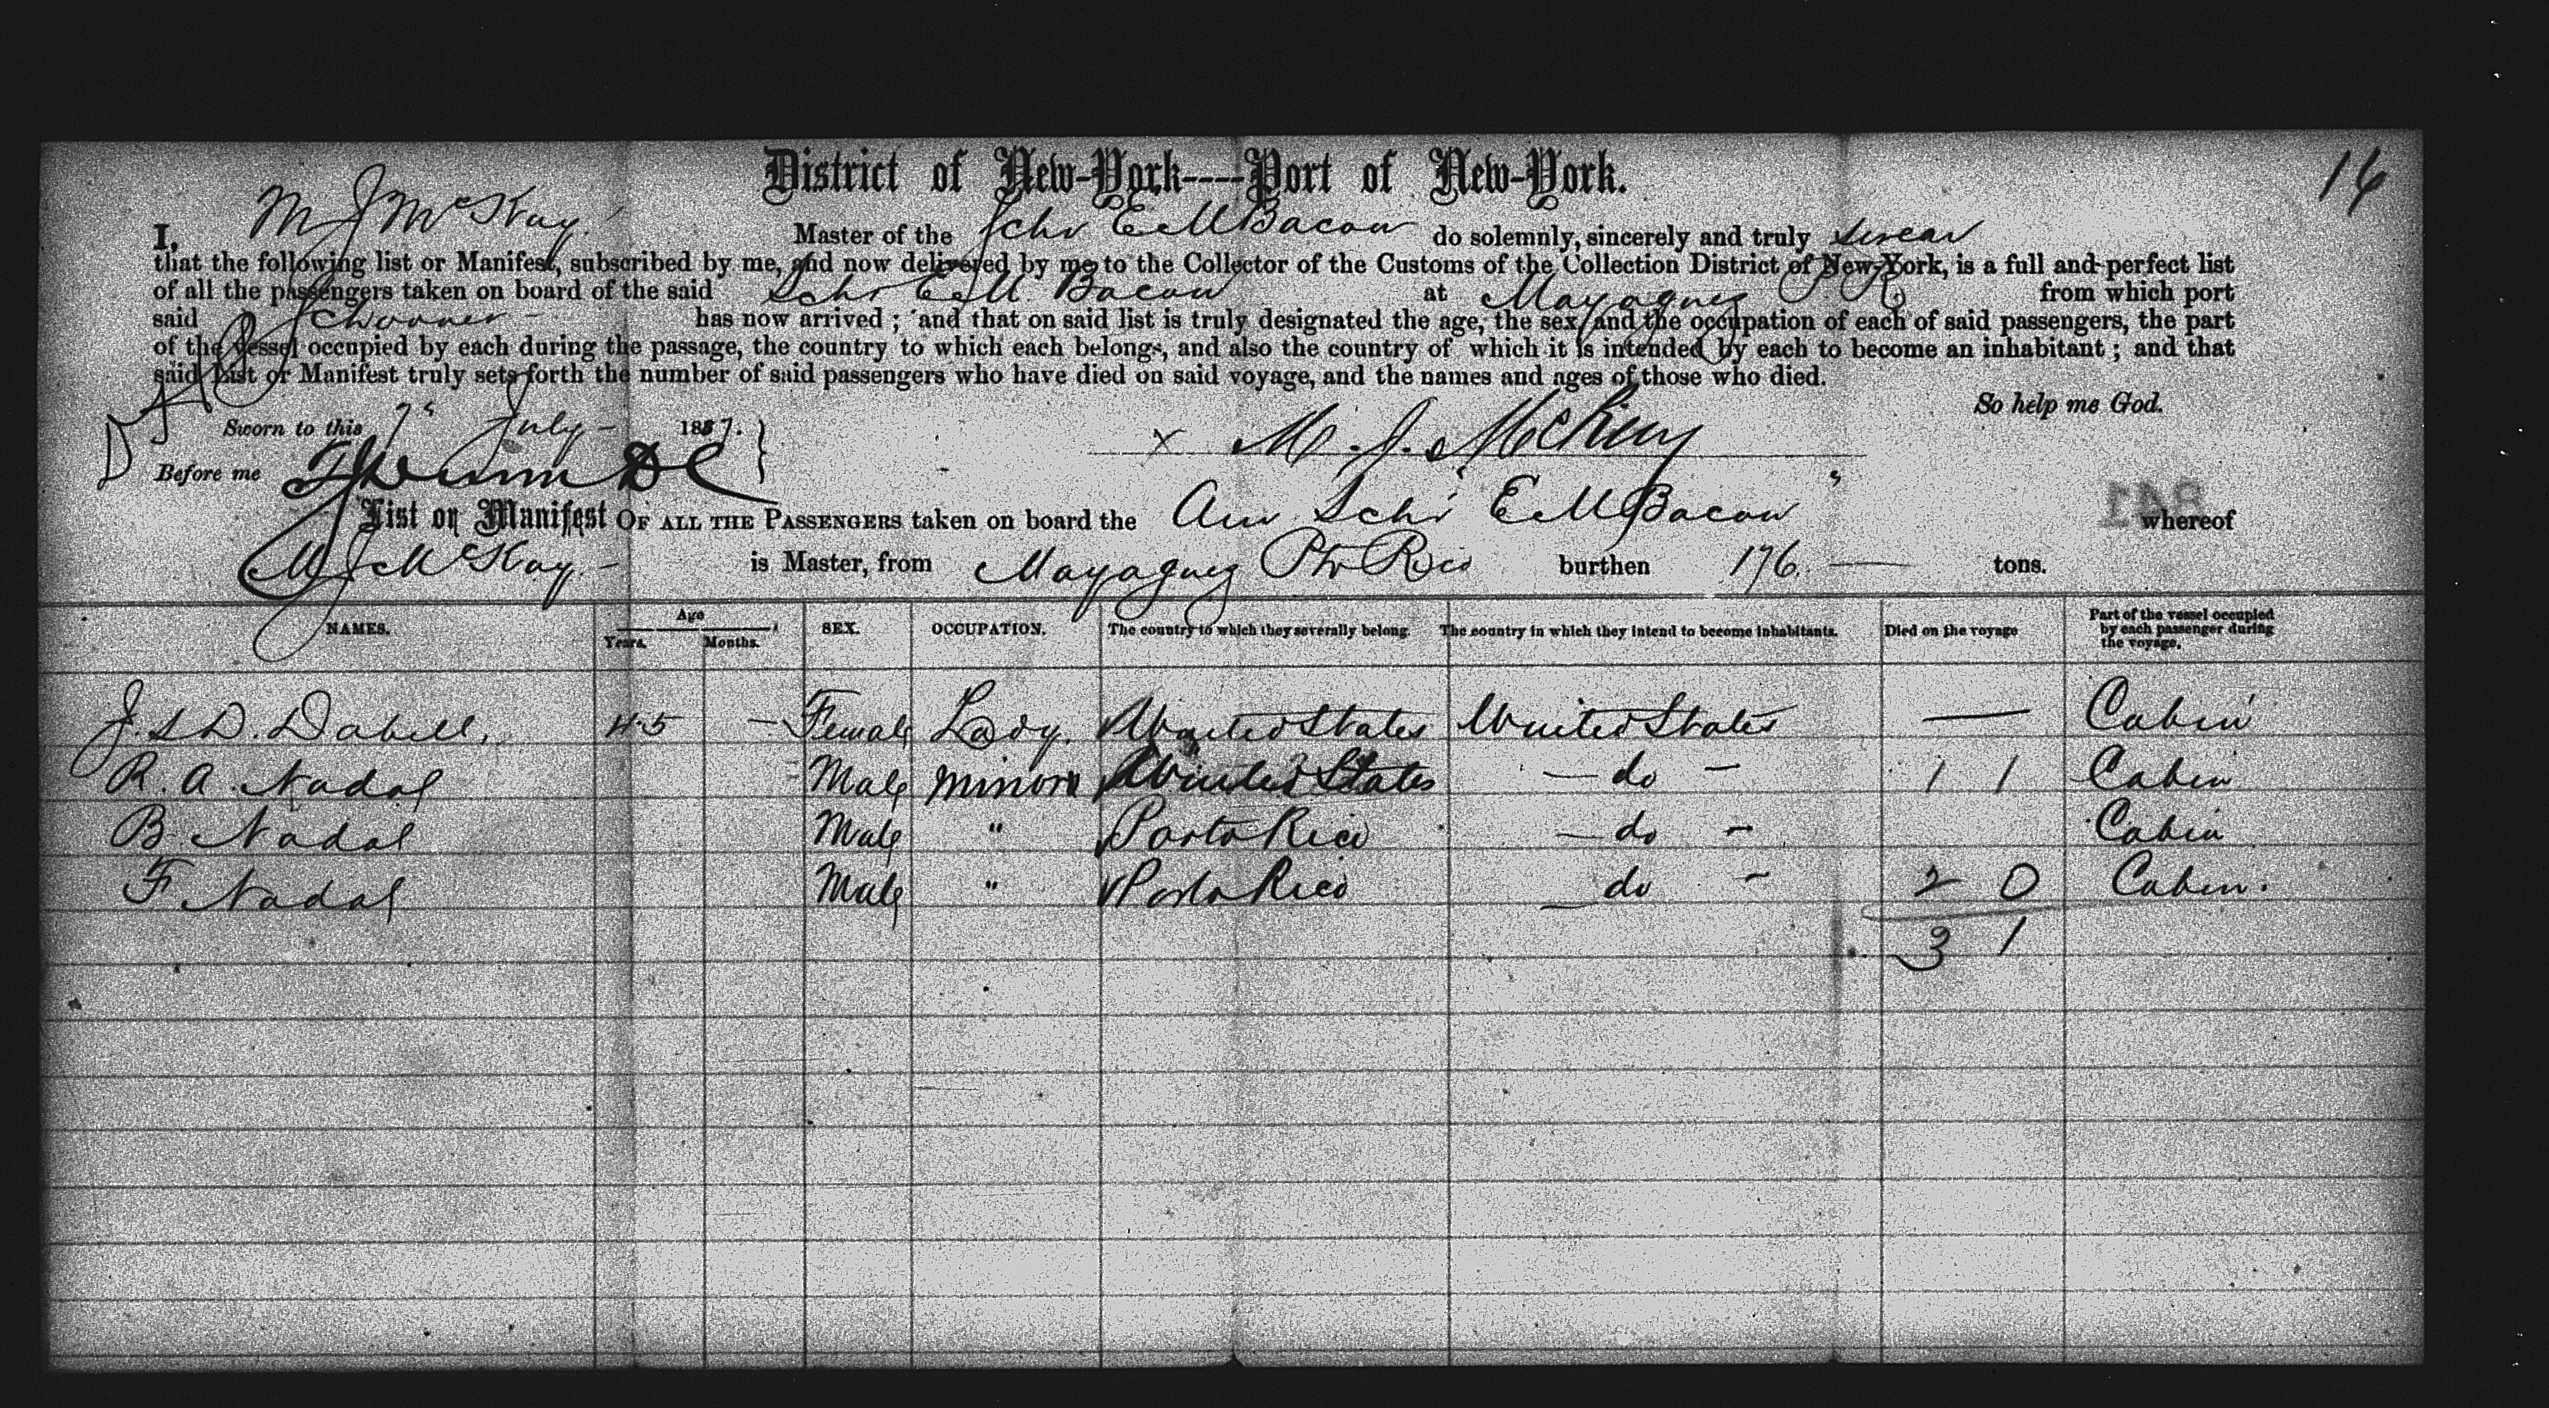 District of New-York----Port of New-York.
16
I, M J McKay Master of the Schr E M Bacon do solemnly, sincerely and truly swear
that the following list or Manifest, subscribed by me, and now delivered by me to the Collector of the Customs of the Collection District of New-York, is a full and perfect list
of all the passengers taken on board of the said Schr E M Bacon at Mayaguez P. R. from which port
said Schooner has now arrived ; and that on said list is truly designated the age, the sex, and the occupation of each of said passengers, the part
of the vessel occupied by each during the passage, the country to which each belongs, and also the country of which it is intended by each to become an inhabitant ; and that
said List or Manifest truly sets forth the number of said passengers who have died on said voyage, and the names and ages of those who died.
So help me God.
Sworn to this 7" July 1887. } x M. J. McKay
Before me
List or Manifest OF ALL THE PASSENGERS taken on board the Am Schr "E M Bacon" whereof
841
M J McKay is Master, from Mayaguez Pto Rico burthen 176. tons.
NAMES. Age Years. Months. SEX. OCCUPATION. The country to which they severally belong. The country in which they intend to become inhabitants. Died on the voyage Part of the vessel occupied by each passenger during the voyage.
J. L D. Dabell, 45 — Female Lady United States United States — Cabin
R. A. Nadal Male minors United States — do — 1 1 Cabin
B. Nadal Male " Porto Rico — do — Cabin
F Nadal Male " Porto Rico — do — 2 0 Cabin.
3 1